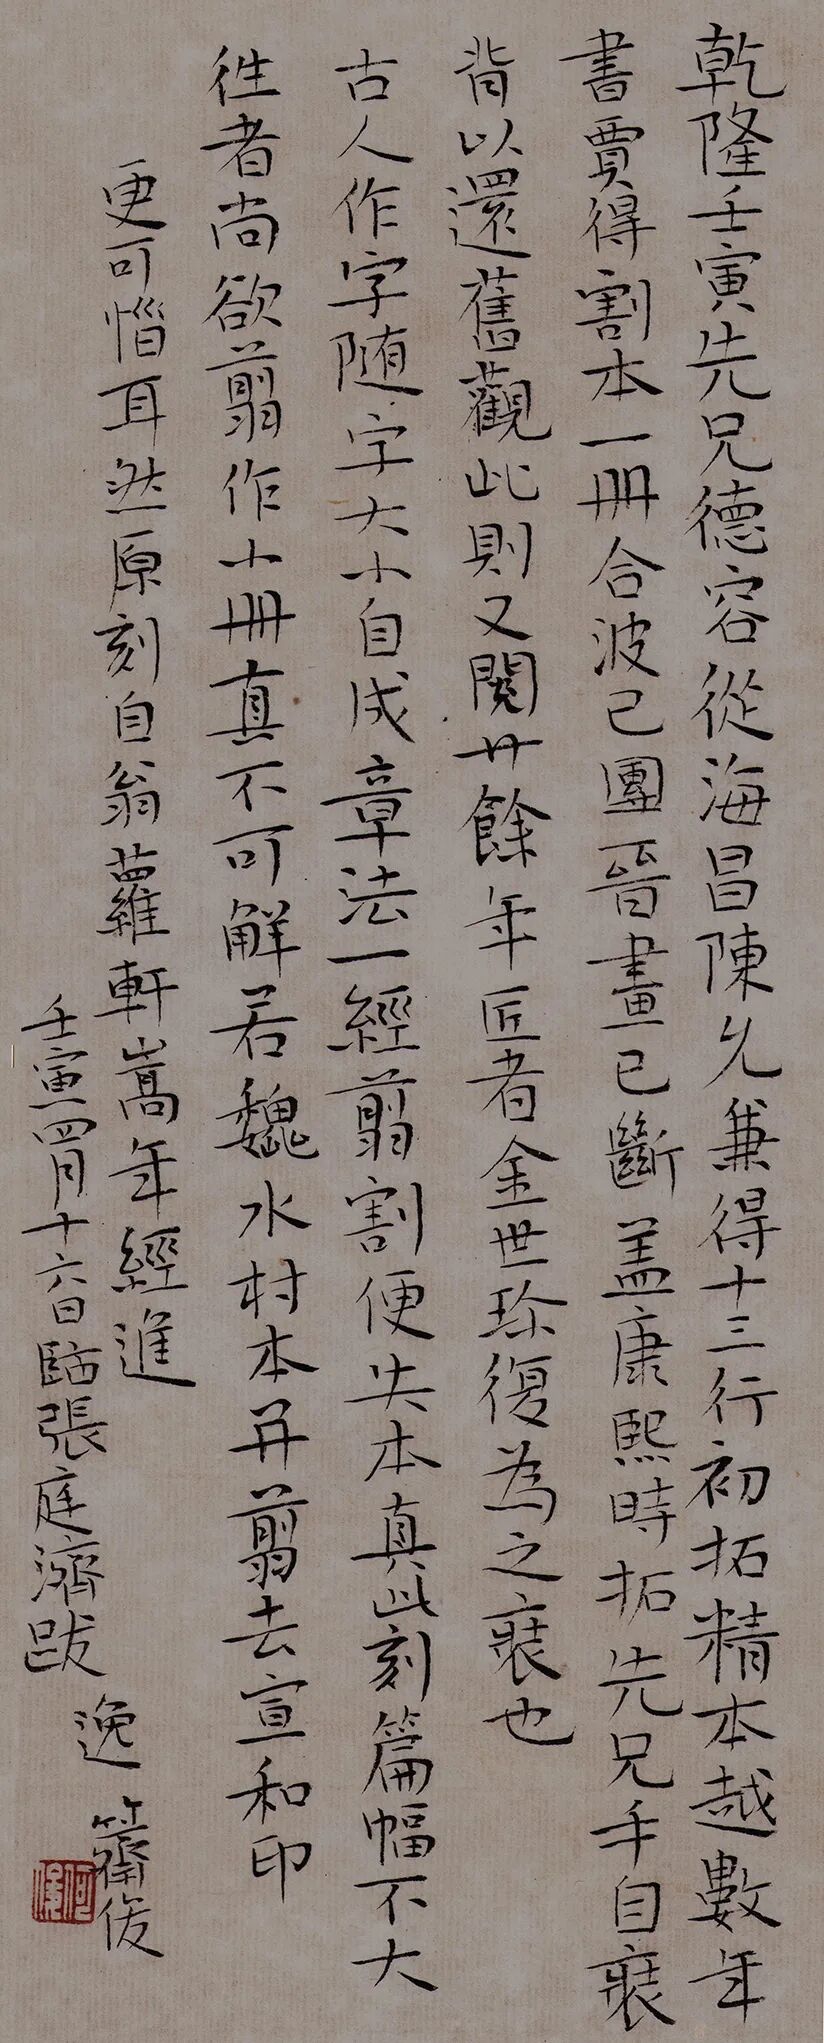 乾隆壬寅先兄德容從海昌陳氏兼得十三行初拓精本越數年
書賈得割本一冊合波已團晉畫已斷盖康熙時拓先兄手自裝
背以還舊觀此則又閱廿餘年匠者金世珎復為之裝也
古人作字随字大小自成章法一經翦割便失本真此刻篇幅不大
徃者尚欲翦作小冊真不可解若魏水村本并翦去宣和印
更可惱耳然原刻自翁蘿軒嵩年經進
壬寅四月十六日臨張庭濟跋
逸齋俊
何俊